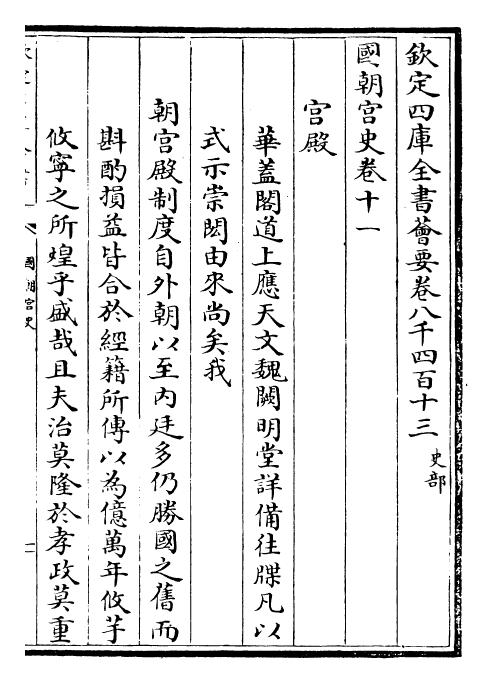 欽定四庫全書薈要卷八千四百十三 史部
國朝宮史卷十一
宮殿
華蓋閣道上應天文魏闕明堂詳備往牒凡以
式示崇閎由來尚矣我
朝宮殿制度自外朝以至内廷多仍勝國之舊而
斟酌損益皆合於經籍所傳以為億萬年攸芋
攸寧之所煌乎盛哉且夫治莫隆於孝政莫重
國朝宮史